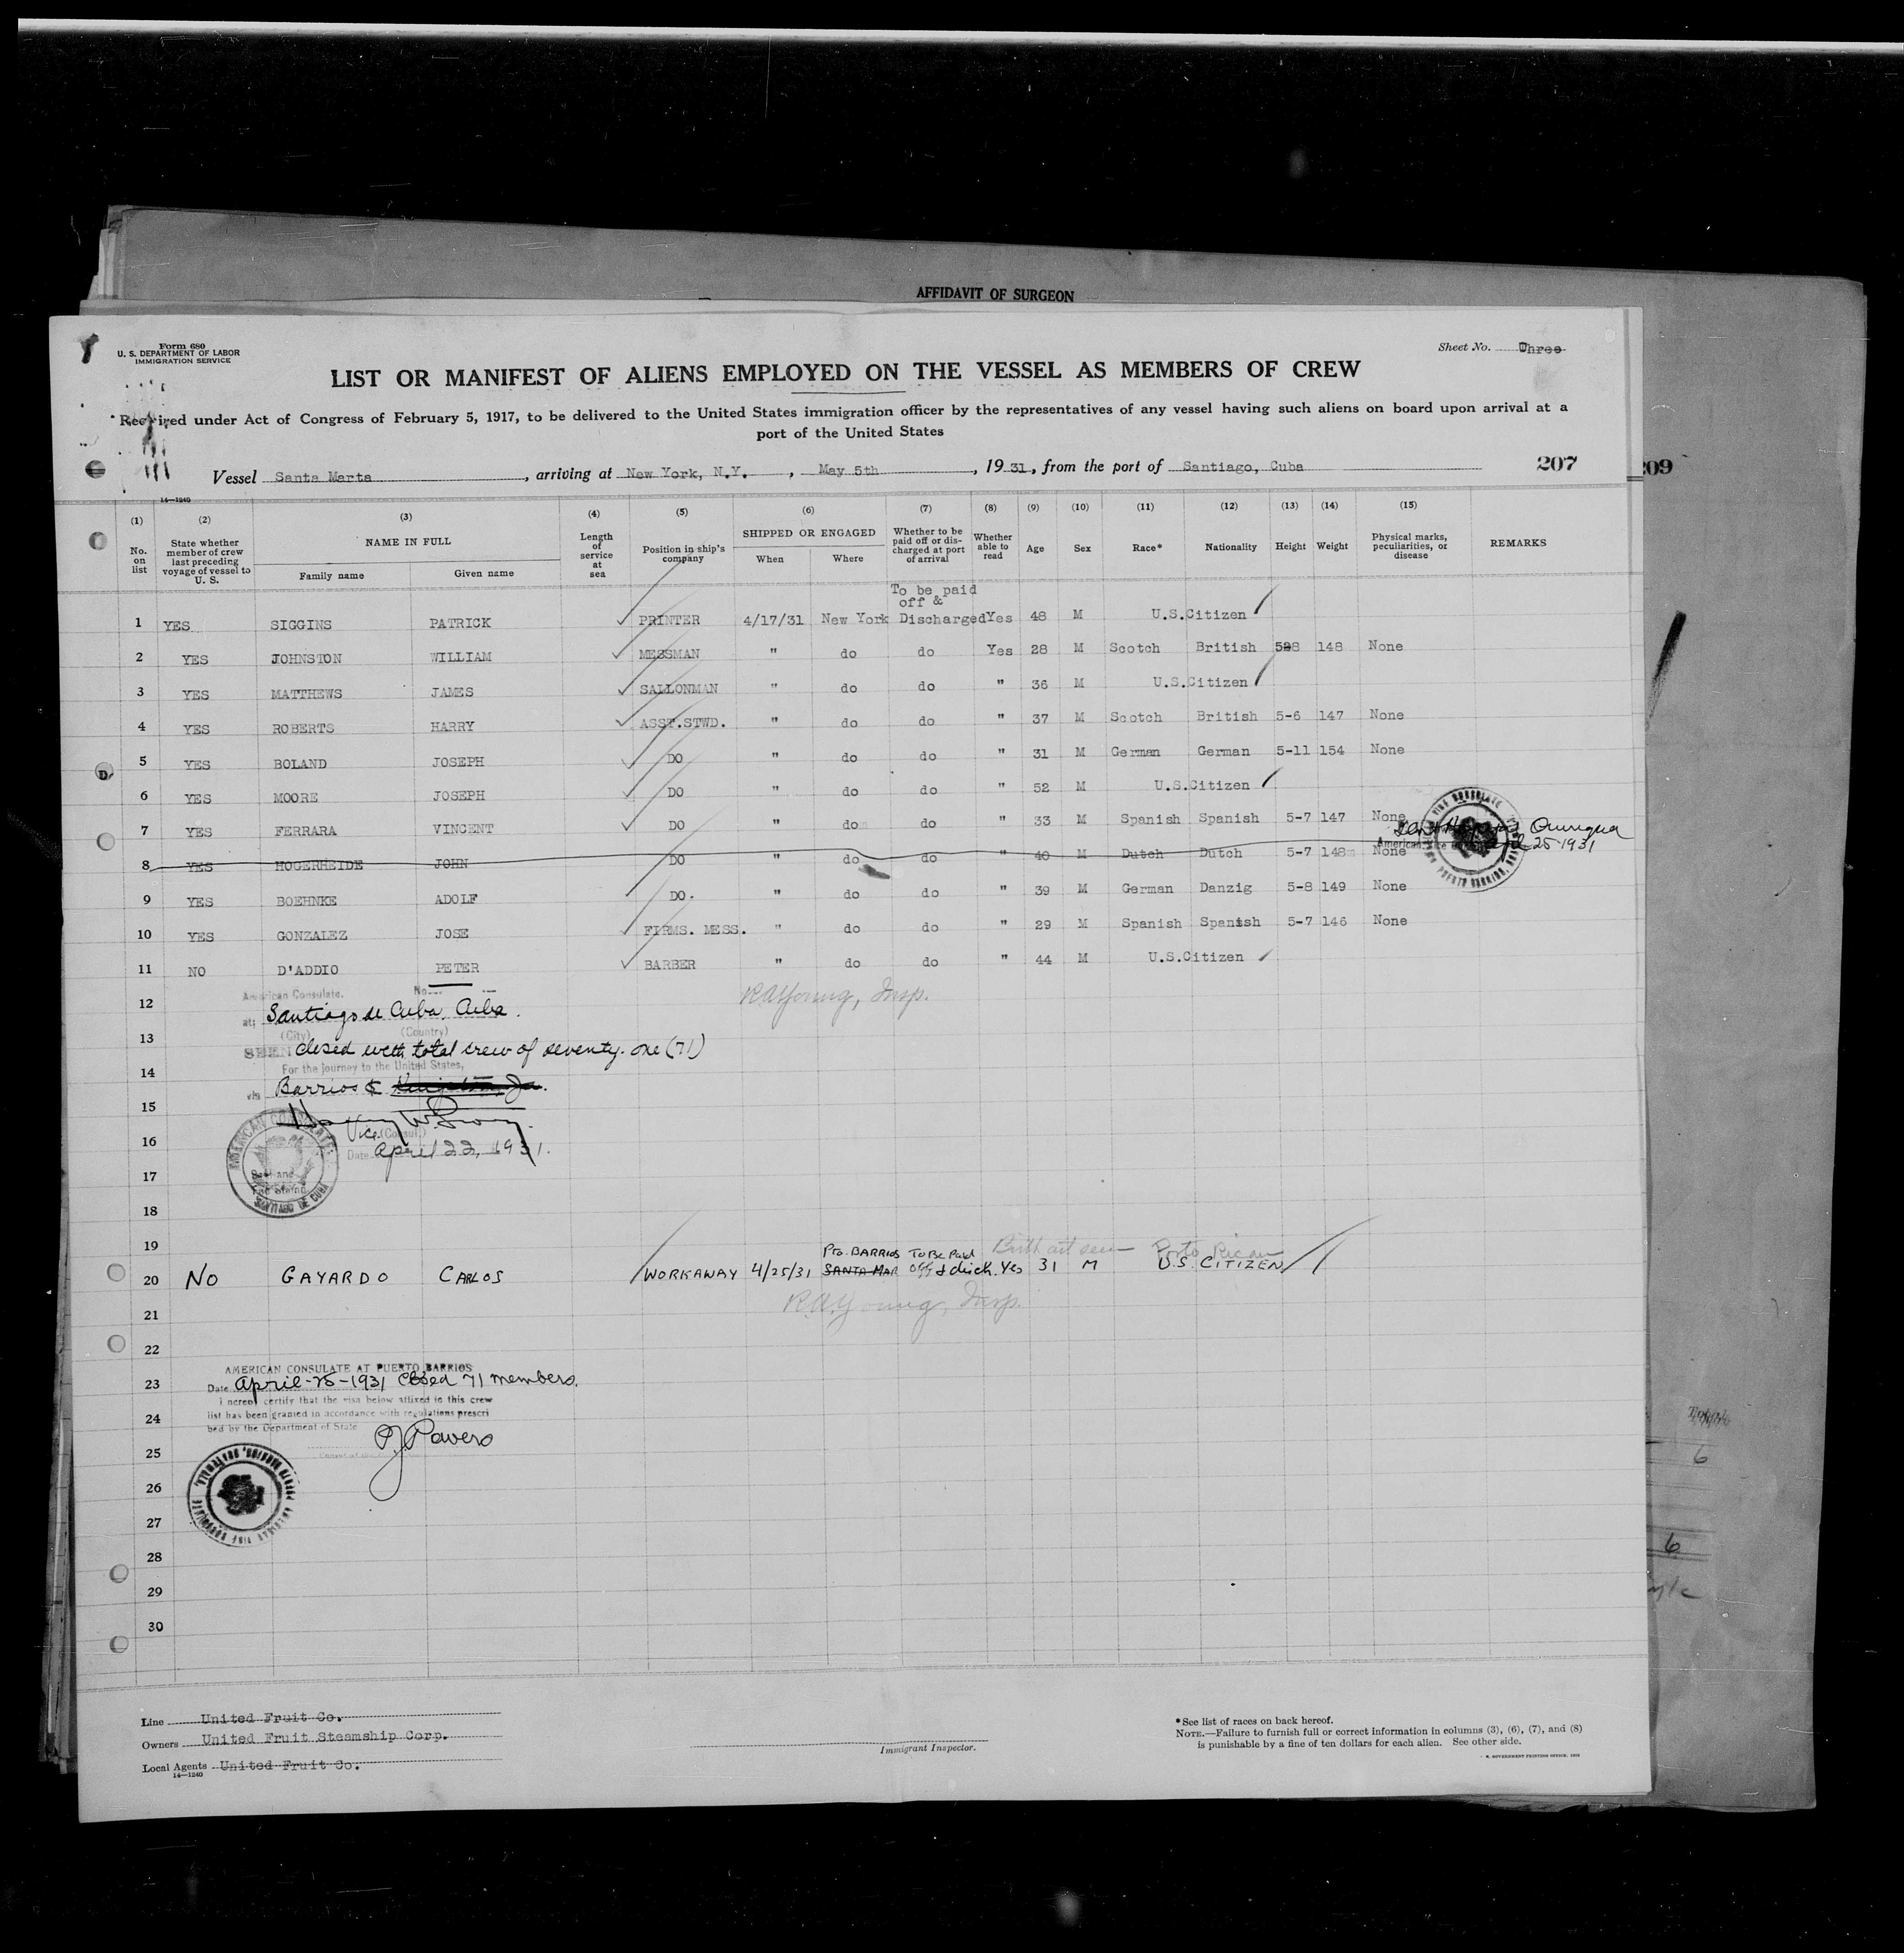 AFFIDAVIT OF SURGEON
Form 680
U. S. DEPARTMENT OF LABOR
IMMIGRATION SERVICE
Sheet No. Three
LIST OR MANIFEST OF ALIENS EMPLOYED ON THE VESSEL AS MEMBERS OF CREW
Required under Act of Congress of February 5, 1917, to be delivered to the United States immigration officer by the representatives of any vessel having such aliens on board upon arrival at a
port of the United States
Vessel Santa Marta, arriving at New York, N.Y., May 5th, 1931, from the port of Santiago, Cuba 207
209
14—1240
(1) (2) (3) (4) (5) (6) (7) (8) (9) (10) (11) (12) (13) (14) (15)
No. on list State whether member of crew last preceding voyage of vessel to U. S. NAME IN FULL Family name Given name Length of service at sea Position in ship's company SHIPPED OR ENGAGED When Where Whether to be paid off or discharged at port of arrival Whether able to read Age Sex Race* Nationality Height Weight Physical marks, peculiarities, or disease REMARKS
To be paid
off &
1 YES SIGGINS PATRICK PRINTER 4/17/31 New York Discharged Yes 48 M U.S.Citizen
2 YES JOHNSTON WILLIAM MESSMAN " do do Yes 28 M Scotch British 5-8 148 None
3 YES MATTHEWS JAMES SALLONMAN " do do " 36 M U.S.Citizen
4 YES ROBERTS HARRY ASST.STWD. " do do " 37 M Scotch British 5-6 147 None
5 YES BOLAND JOSEPH DO " do do " 31 M German German 5-11 154 None
6 YES MOORE JOSEPH DO " do do " 52 M U.S.Citizen
7 YES FERRARA VINCENT DO " do do " 33 M Spanish Spanish 5-7 147 None
8 YES HOGERHEIDE JOHN DO " do do " 40 M Dutch Dutch 5-7 148 None 25 1931
9 YES BOEHNKE ADOLF DO. " do do " 39 M German Danzig 5-8 149 None
10 YES GONZALEZ JOSE FIRMS. MESS. " do do " 29 M Spanish Spanish 5-7 146 None
11 NO D'ADDIO PETER BARBER " do do " 44 M U.S.Citizen
American Consulate. No.
12 RAYoung, Insp.
at: Santiago de Cuba, Cuba.
(City) (Country)
13
SEEN closed with total crew of seventy-one (71)
For the journey to the United States,
14
via Barrios & Kingston, Ja.
15
Vice (Consul)
16
Date April 22, 1931.
AMERICAN CONSULATE
SANTIAGO DE CUBA
17
18
19 Pto. BARRIOS To Be Paid Birth cert seen Porto Rican
20 No GAYARDO CARLOS WORKAWAY 4/25/31 SANTA MAR off & disch. Yes 31 M U.S. CITIZEN
21 RAYoung, Insp.
22
AMERICAN CONSULATE AT PUERTO BARRIOS
23
Date April-25-1931 closed 71 members.
I hereby certify that the visa below affixed to this crew
24
list has been granted in accordance with regulations prescri
bed by the Department of State
25
26
27
28
29
30
Line United Fruit Co.
Owners United Fruit Steamship Corp.
Local Agents United Fruit Co.
14—1240
Immigrant Inspector.
*See list of races on back hereof.
NOTE.—Failure to furnish full or correct information in columns (3), (6), (7), and (8)
is punishable by a fine of ten dollars for each alien. See other side.
Total
6
6